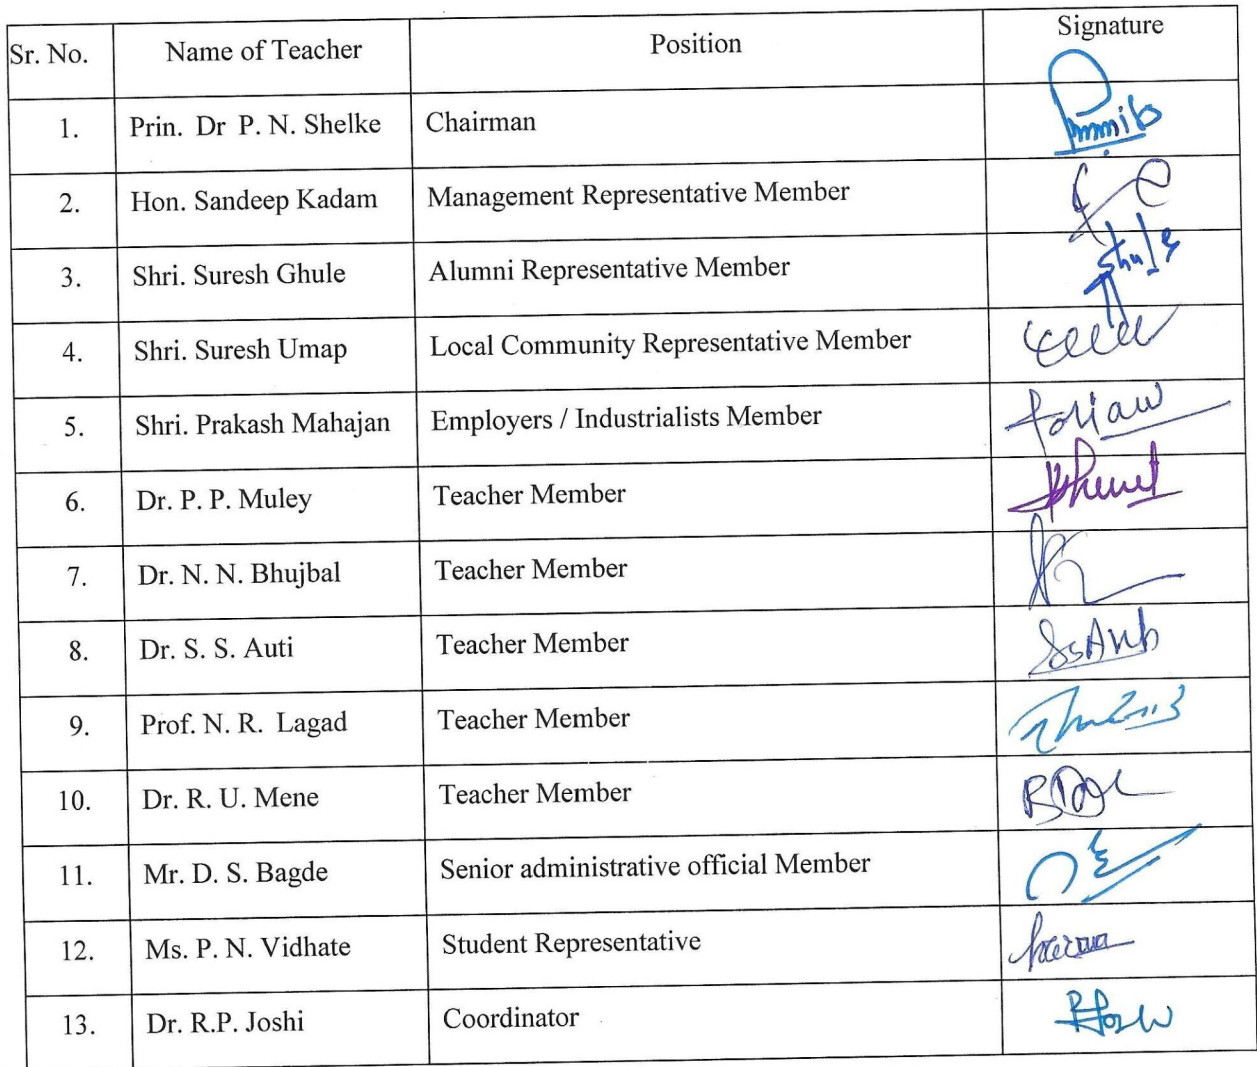 Sr. No. Name of Teacher Position Signature
1. Prin. Dr P. N. Shelke Chairman
2. Hon. Sandeep Kadam Management Representative Member
3. Shri. Suresh Ghule Alumni Representative Member
4. Shri. Suresh Umap Local Community Representative Member
5. Shri. Prakash Mahajan Employers / Industrialists Member
6. Dr. P. P. Muley Teacher Member
7. Dr. N. N. Bhujbal Teacher Member
8. Dr. S. S. Auti Teacher Member
9. Prof. N. R. Lagad Teacher Member
10. Dr. R. U. Mene Teacher Member
11. Mr. D. S. Bagde Senior administrative official Member
12. Ms. P. N. Vidhate Student Representative
13. Dr. R.P. Joshi Coordinator